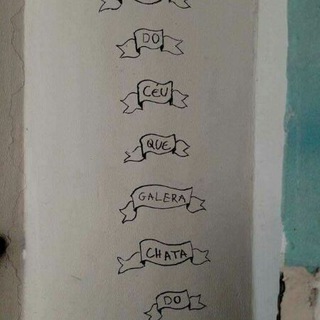 DO
CÉU
QUE
GALERA
CHATA
DO